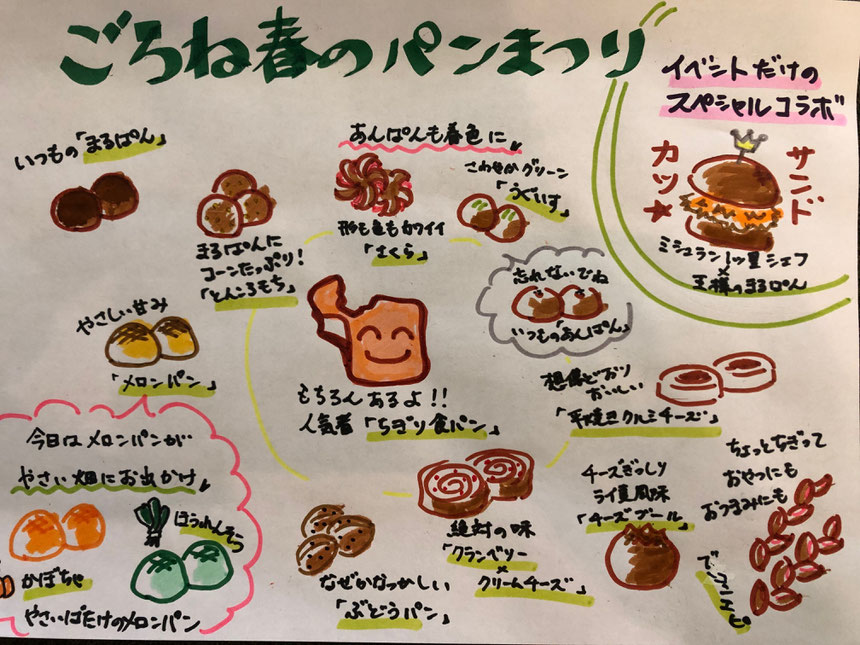 ごろね春のパンまつり
イベントだけの
スペシャルコラボ
カツ★
サンド
ミシュラン1ツ星シェフ
×
王様のまるぱん
いつもの「まるぱん」
まるぱんに
コーンたっぷり!
「とんころもち」
あんぱんも春色に
形も色もカワイイ
「さくら」
さわやかグリーン
「うぐいす」
忘れないでね
いつもの「あんぱん」
やさしい甘み
「メロンパン」
もちろんあるよ!!
人気者「ちぎり食パン」
想像どおり
おいしい
「平焼きクルミチーズ」
今日はメロンパンが
やさい畑にお出かけ
かぼちゃ
ほうれんそう
やさいばたけのメロンパン
なぜかなつかしい
「ぶどうパン」
絶対の味
「クランベリー
×
クリームチーズ」
チーズぎっしり
ライ麦風味
「チーズブール」
ちょっとちぎって
おやつにも
おつまみにも